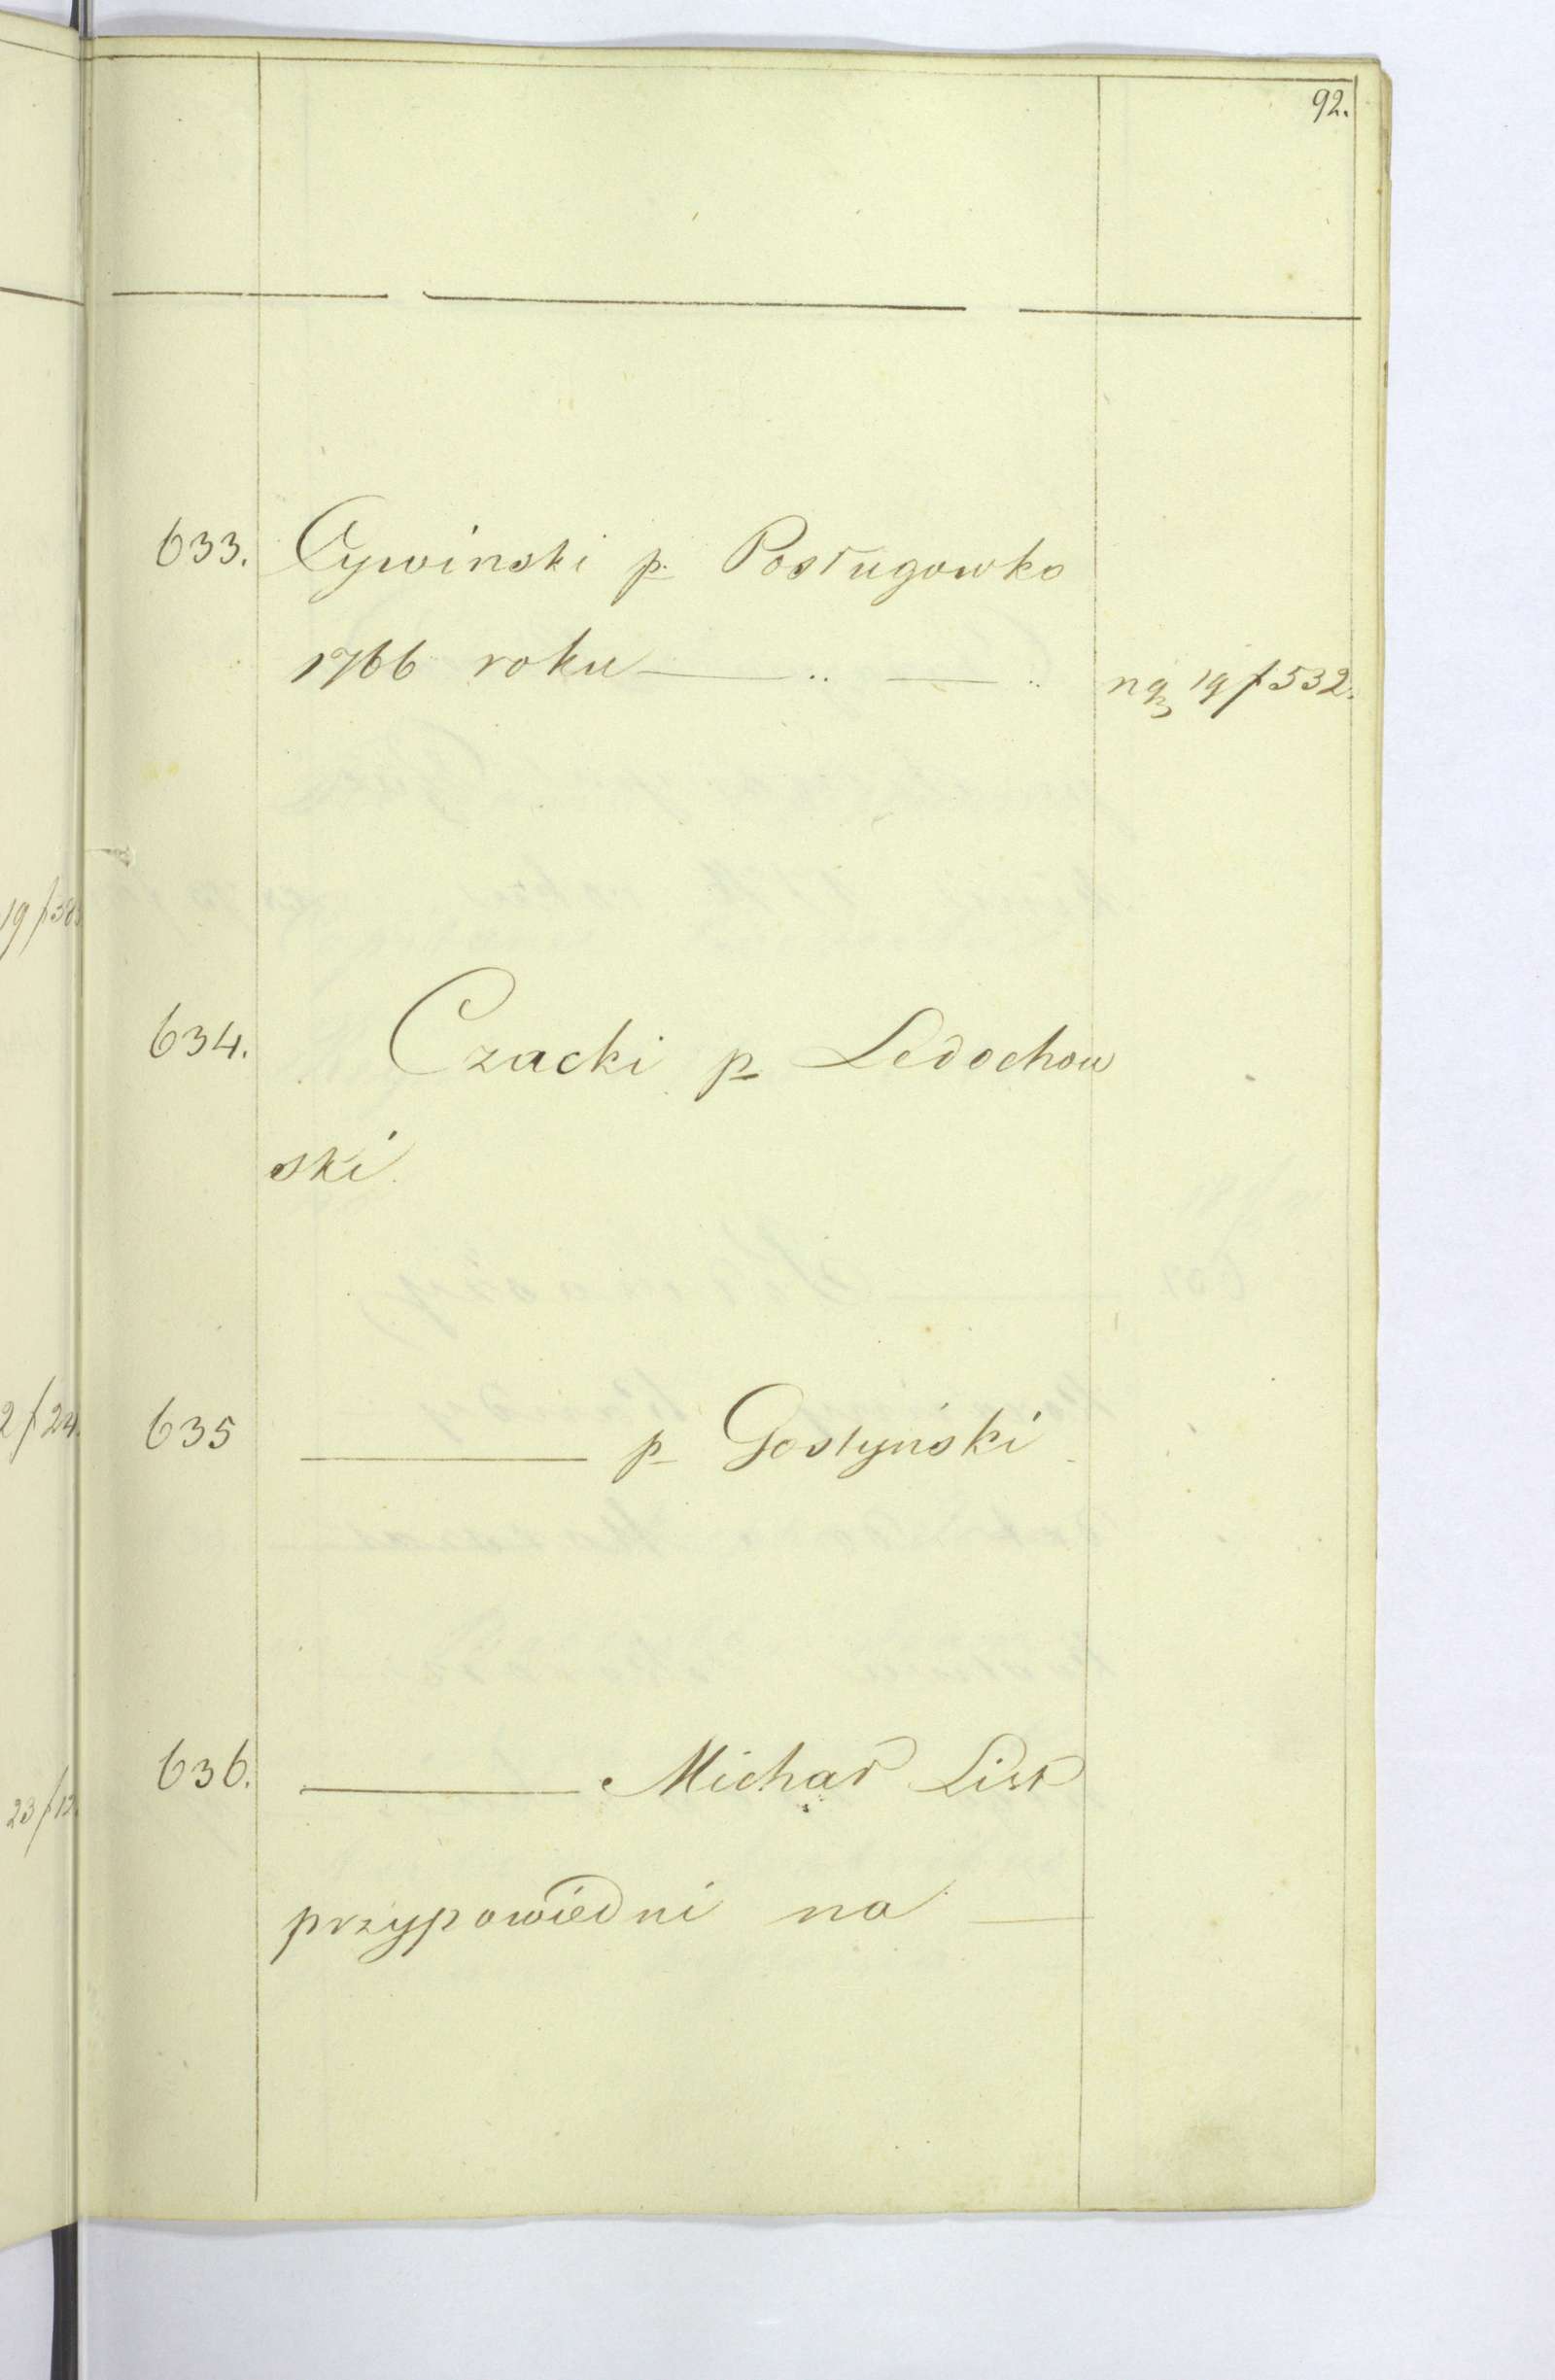 92.
633. Cywinski p. Posługowko
1766 roku — .. — .. 19 f 532.
634. Czacki p Ledochow
ski
635 — p Gostyński
636. — Michał List
przypowiedni na —